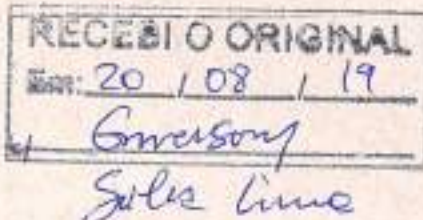 RECEBI O ORIGINAL
Em: 20 / 08 / 19
Emerson
Lima